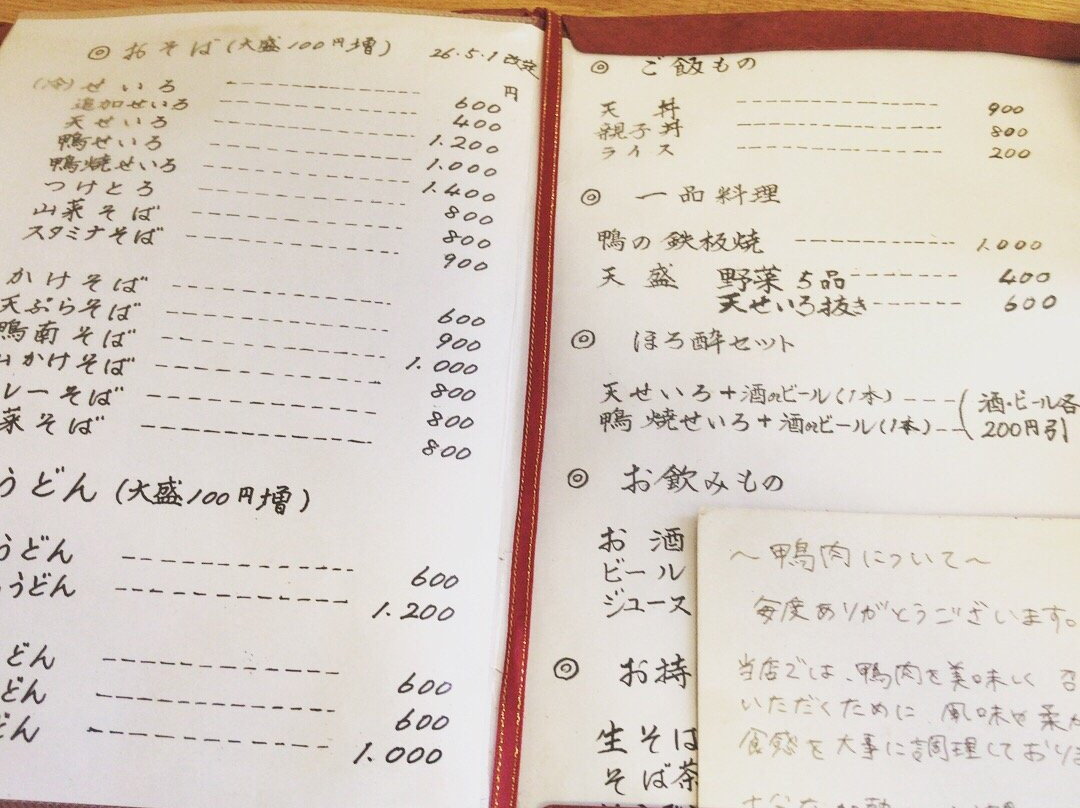 ◎ おそば(大盛100円増) 26.5.1改定
円
(冷)せいろ 600
追加せいろ 400
天せいろ 1.200
鴨せいろ 1.000
鴨焼せいろ 1.400
つけとろ 800
山菜そば 800
スタミナそば 900
かけそば 600
天ぷらそば 900
鴨南そば 1.000
かけそば 800
レーそば 800
菜そば 800
うどん(大盛100円増)
うどん 600
うどん 1.200
どん 600
どん 600
どん 1.000
◎ ご飯もの
天丼 900
親子丼 800
ライス 200
◎ 一品料理
鴨の鉄板焼 1.000
天盛 野菜5品 400
天せいろ抜き 600
◎ ほろ酔セット
天せいろ+酒orビール(1本) (酒・ビール各
鴨焼せいろ+酒orビール(1本) 200円引
◎ お飲みもの
お酒
ビール
ジュース
◎ お持
生そば
そば茶
～鴨肉について～
毎度ありがとうございます。
当店では、鴨肉を美味しく召
いただくために 風味や柔
食感を大事に調理しておりま